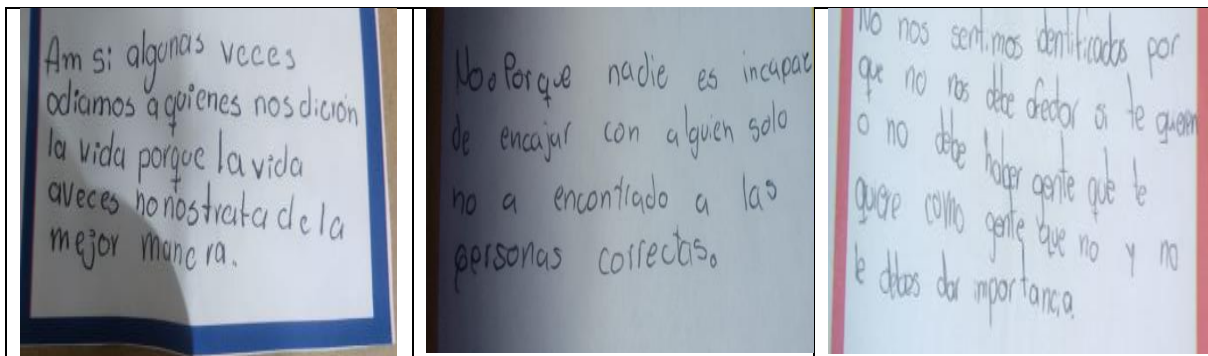 Am si algunas veces
odiamos a quienes nos dición
la vida porque la vida
aveces no nos trata de la
mejor manera.
No. Porque nadie es incapaz
de encajar con alguien solo
no a encontrado a las
personas correctas.
No nos sentimos identificados por
que no nos debe afectar si te quieren
o no debe haber gente que te
quiere como gente que no y no
le debes dar importancia.